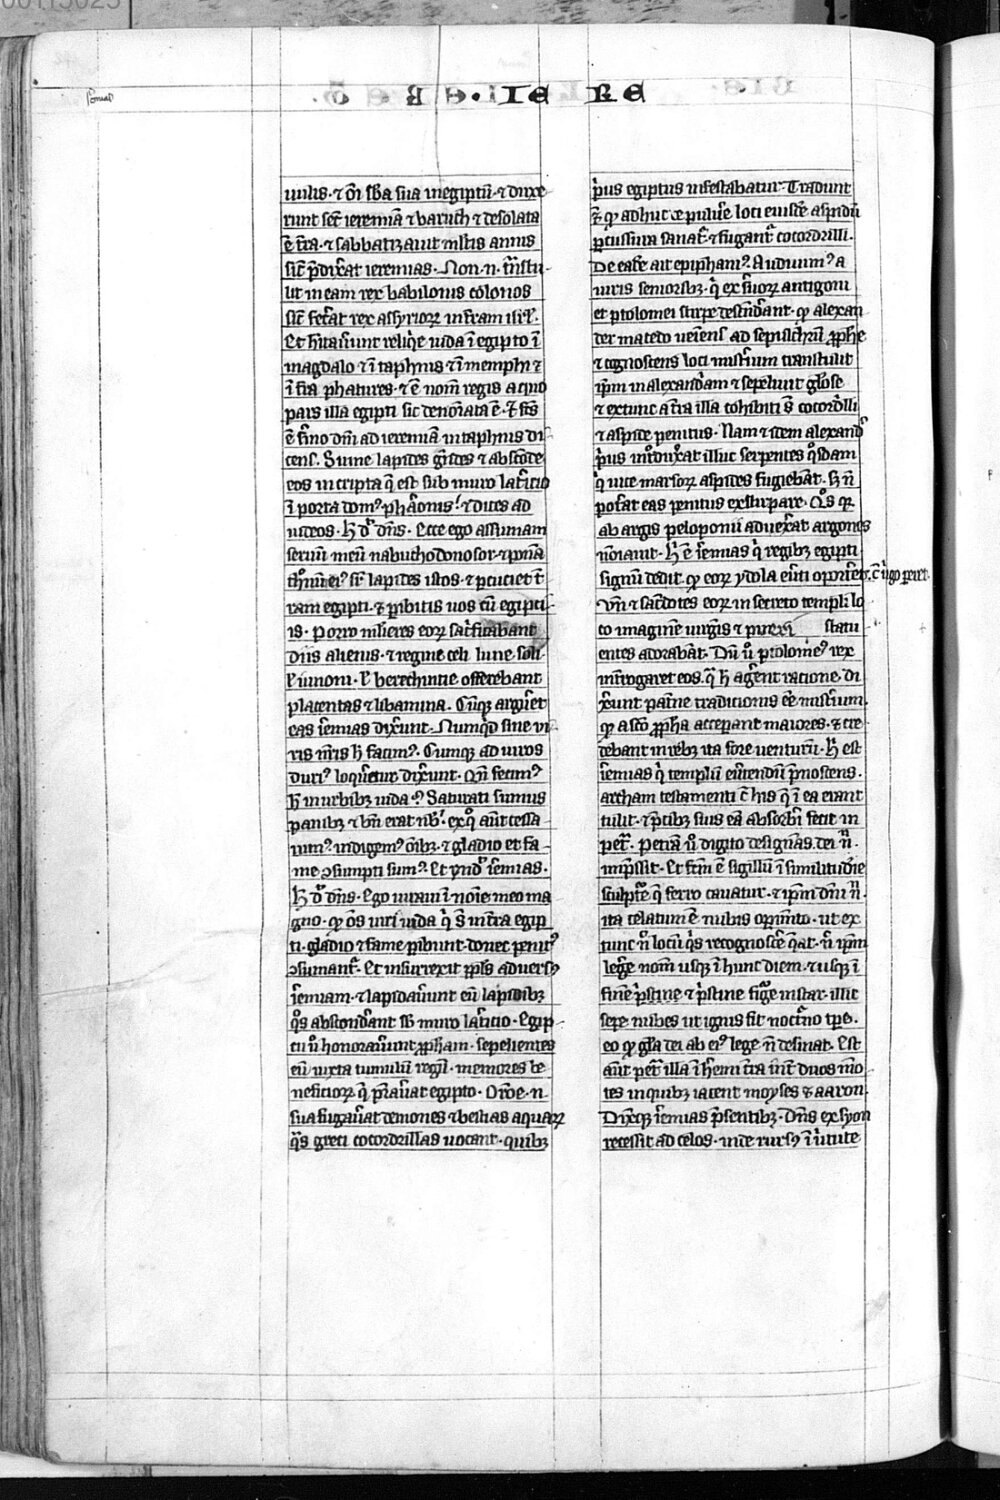 DE · IE RE
uulis · ⁊ oı̄ sb̄a sua in egiptū · ⁊ duxe
runt secū ieremiā ⁊ baruch ⁊ desolata
ē t̄ra · ⁊ sabbatizauit ml̄tis annis
sic̄ p̄dix̄at ieremias · Non · n · t̄nstu
lit in eam rex babilonis colonos
sic̄ fec̄at rex assyrioꝝ in t̄ram isrl̄ ·
Et hītaūunt reliq̄e iuda ī egipto ī
magdalo · ⁊ ī taphnis ⁊ ī memphi ⁊
ī t̄ra phatures · ⁊ ē nom̄ regis a quo
pars illa egipti sic denoīata ē · ⁊ fc̄s
ē s̄mo dn̄i ad ieremiā in taphnis di
cens · Sume lapides ḡndes ⁊ absc̄ode
eos in cripta q̄ est sub muro lat̄icio
ī porta domꝰ phaōnis · ⁊ dices ad
iudeos · h̄ d̄ dn̄s · Ecce ego assumam
seruū meū nabuchodonosor · ⁊ ponā
thronū eiꝰ sr̄ lapides istos · ⁊ p̄cuciet t̄
ram egipti · ⁊ p̄ibitis uos cū egipci
is · Porro ml̄ieres eoꝝ sac̄ficabant
diis alienis · ⁊ regine celi lune soli
l̄ iunoni · l̄ berechintie offerebant
placentas ⁊ libamina · Cūqꝫ argūet
eas ı̄emias dix̄unt · Numqd̄ sine ui
ris n̄ris h̄ facimꝰ · Cumqꝫ ad uiros
duriꝰ loq̄retur dix̄unt · Qn̄ fecimꝰ
h̄ in urbibꝫ iuda · Saturati sumus
panibꝫ ⁊ bn̄ erat nob̄ · ex q̊ aūt cessa
uimꝰ · indigemꝰ oı̄bꝫ · ⁊ gladio et fa
me ꝯsumpti sumꝰ · Et r̄ndꝰ ı̄emias ·
h̄ d̄ dn̄s · Ego iuraui ī noı̄e meo ma
gno · qꝫ oı̄s uiri iuda q̄ s̄ in t̄ra egip
ti · gladio ⁊ fame p̄ibunt · donec penitꝰ
ꝯsumant̄ · Et insurrexit ppl̄s aduersꝫ
ı̄emiam · ⁊ lapidaūunt eū lapidibꝫ
q̊s abscond̄ant sb̄ muro lat̄icio · Egip
cii ū honorauūnt ꝓph̄am · sepelientes
eū iuxta tumulū regū · memores be
neficioꝝ q̄ p̄rāuat egipto · Oı̄oe · n
sua fugaūat demones ⁊ bestias aquaꝝ
q̄s greci cocordrillas uocant · quibꝫ
p̄us egiptus infestabatur · Tradunt
⁊ qꝫ adhuc de puluēe loci eiusdē aspidū
p̄cussura sanat̄ · ⁊ fugant̄ cocordrilli ·
De eadē ait epiphaniꝰ · Audiuimꝰ a
uiris senioribꝫ · q̄ ex s̄uoꝝ antigoni
et ptolomei stirpe descēnd̄ant · qꝫ alexan
der macedo ueniens ad sepulch̄rū ꝓph̄e
⁊ cognoscens loci mist̄ium transtulit
ip̄m in alexand̄iam ⁊ sepeliuit gl̄ose
⁊ ex tunc a t̄ra illa cohibiti s̄ cocord̄lli
⁊ aspide penitus · Nam ⁊ idem alexandꝰ
p̄us int̄dux̄at illuc serpentes q̊sdam
q̊ uice marsoꝝ aspides fugiebāt · sꝫ n̄
pot̄at eas penitus exstirpare · Q̊s qꝫ
ab argis peloponii aduex̄at argones
noı̄auit · h̄ ē ı̄emias q̄ regibꝫ egipti
signū dedit · qꝫ eoꝝ ydola eū̄ti oporı̄et · c̄ ūgo peret ·
Vn̄ ⁊ sac̄dotes eoꝝ in secreto templi lo
co imaginē uirgı̄s ⁊ pueri statu
entes adorabāt · Dū ū ptolomeꝰ rex
int̄rogaret eos · q̄ h̄ aḡent racione · di
x̄unt pat̄ne tradicionis ēe mist̄ium ·
qꝫ a sc̄o ꝓph̄a accep̄ant maiores · ⁊ cre
debant in rebꝫ ita fore uenturū · h̄ est
ı̄emias q̄ templū eū̄tendū p̄noscens ·
archam testamenti c̄ his q̄ ī ea erant
tulit · ⁊ p̄cibꝫ suis eā absorb̄i fecit in
pet̄ · Petrā ū digito designās dei n̄ ·
imp̄ssit · Et fcm̄ ē sigillū ī similitudīe
sculpt̄e q̄ ferro cauatur · ⁊ ip̄m dn̄i n̄
ita celatum ē nubis op̄imto · ut ex
tunc n̄ locū q̊s recognosc̄e q̄at · n̄ ip̄m
leḡe nom̄ usqꝫ ī hunc diem · ⁊ usqꝫ ī
finē p̄stine ⁊ p̄stine fiḡe instar · illic
sepe nubes ut ignis fit noct̄no tp̄e ·
eo qꝫ gl̄a dei ab eiꝰ lege n̄ desinat · Est
aūt pet̄ illa ī h̄emi t̄ra int̄ duos mō
tes in quibꝫ iacent moyses ⁊ aaron ·
Dix̄qꝫ ı̄emias p̄sentibꝫ · Dn̄s ex syon
recessit ad celos · inde rursꝫ ī ūtute